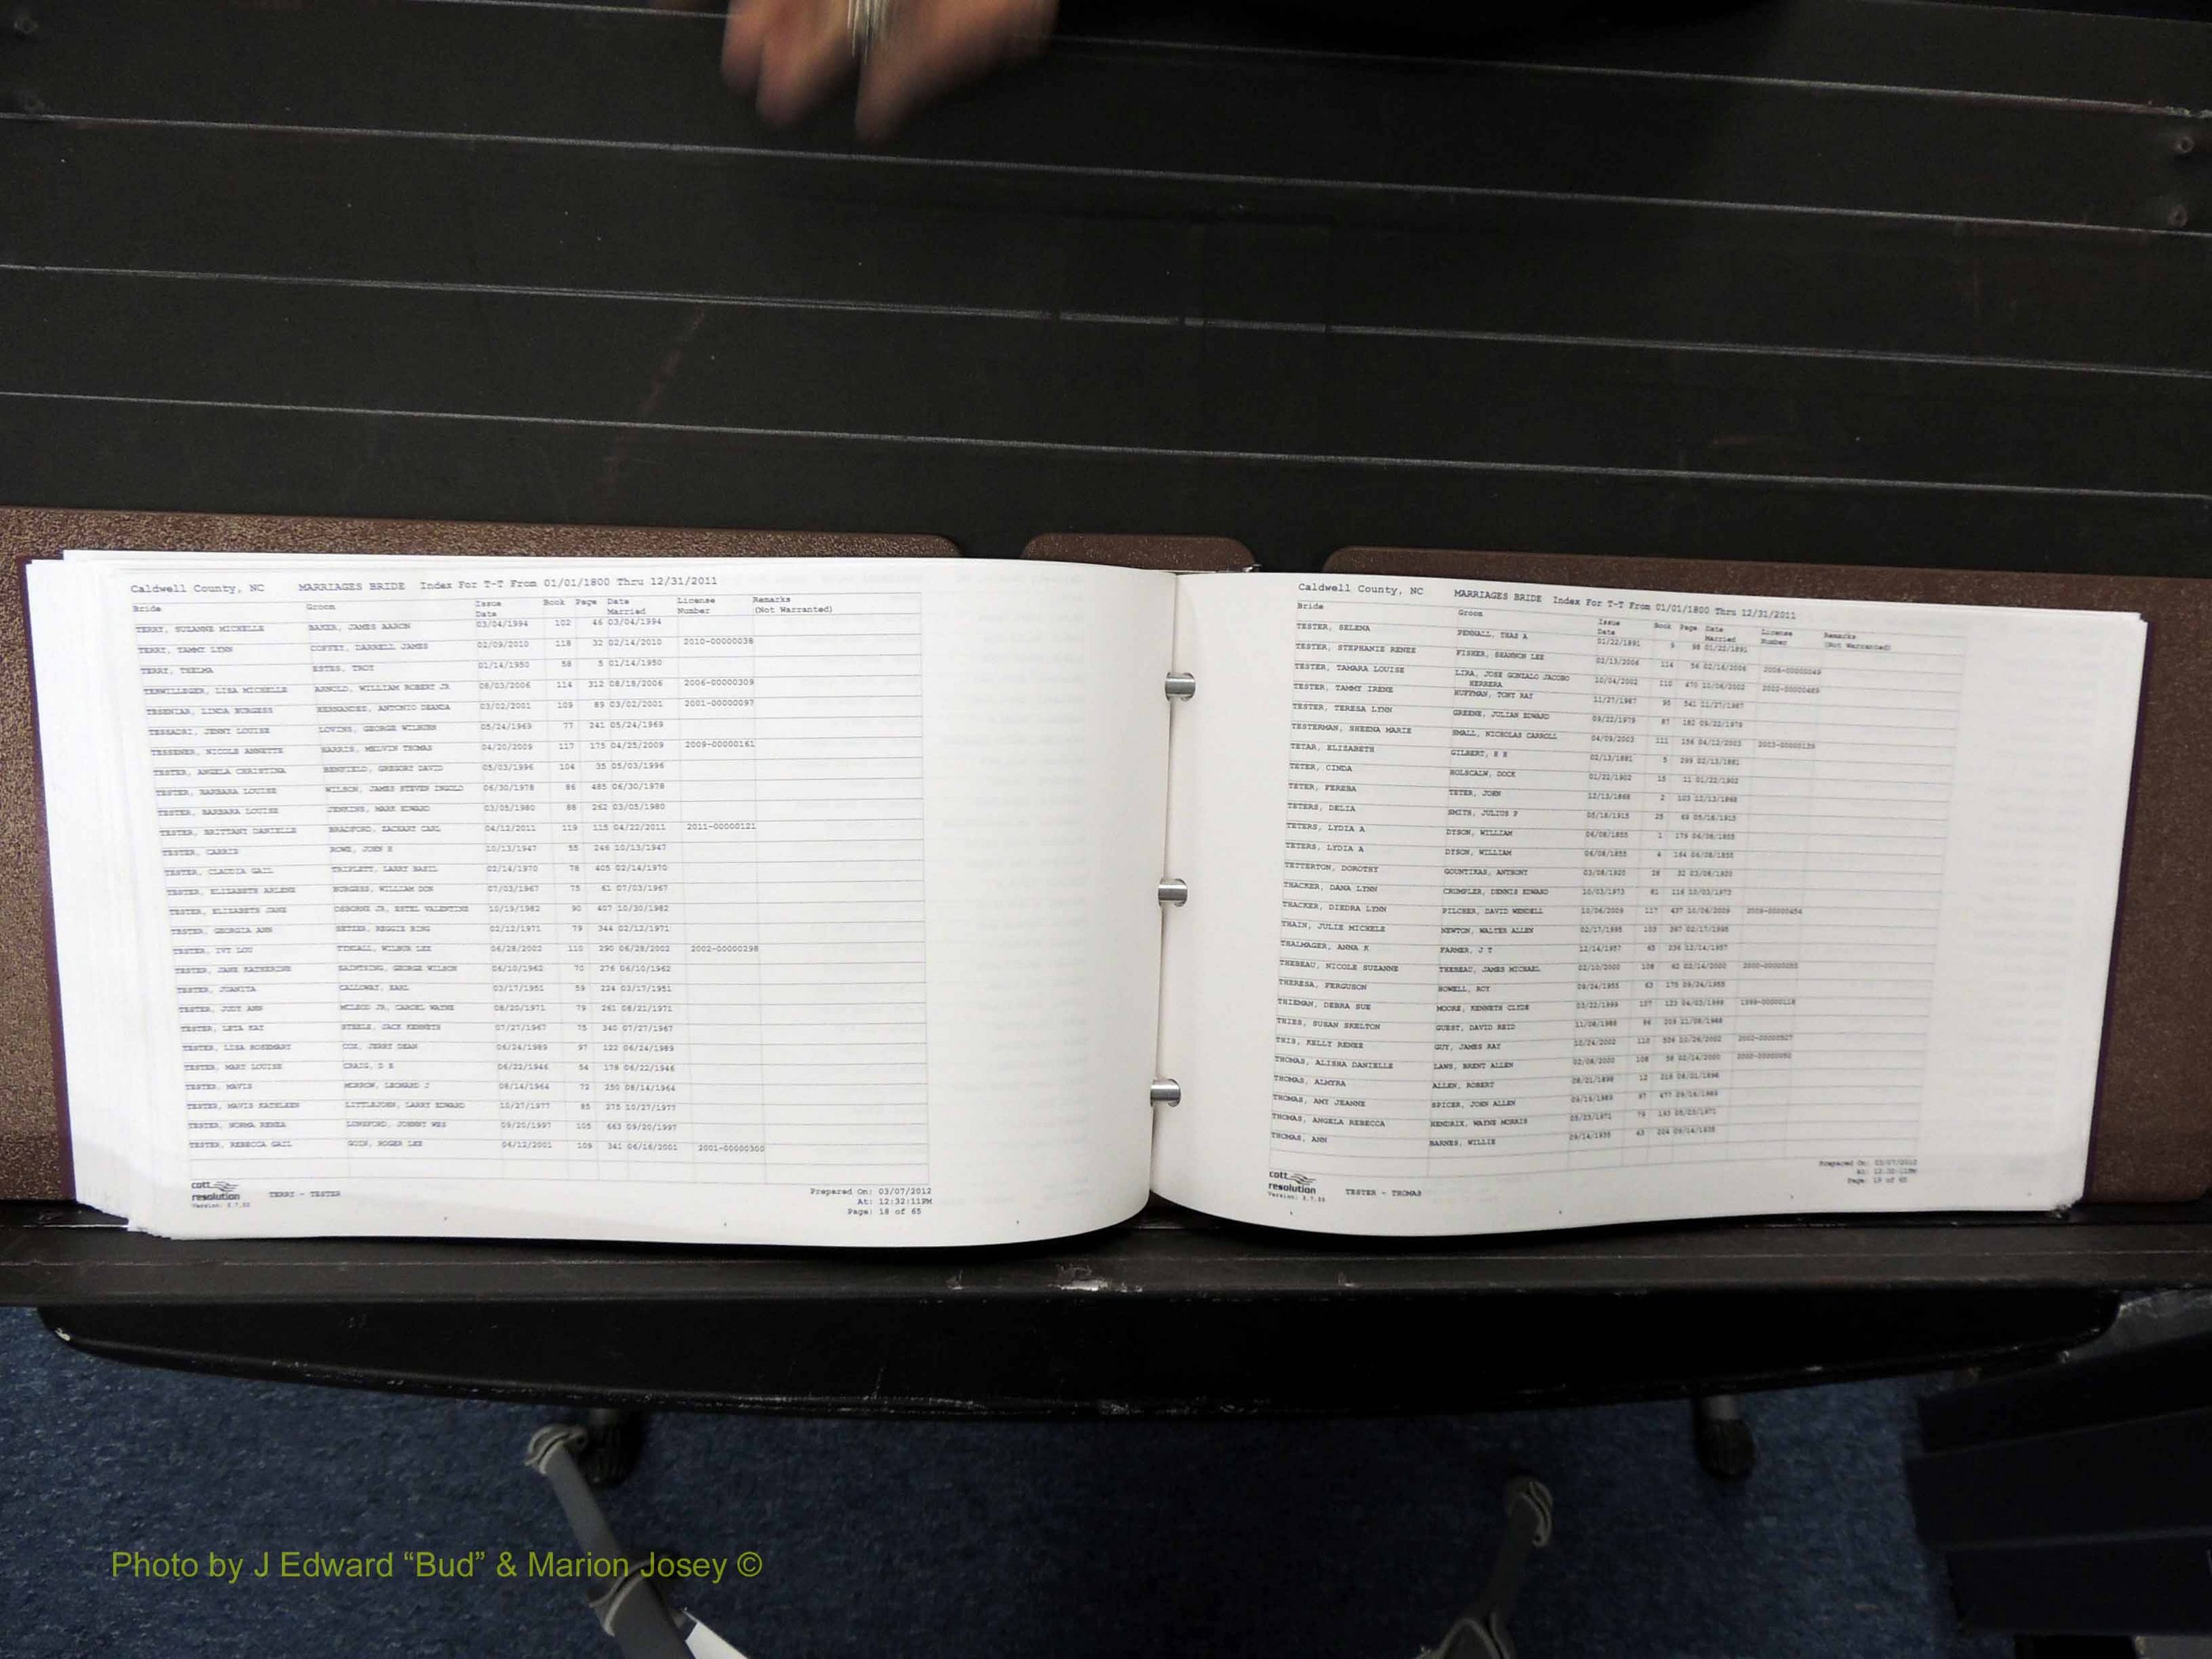 Caldwell County, NC MARRIAGES BRIDE Index For T-T From 01/01/1800 Thru 12/31/2011
Bride Groom Issue Date Book Page Date Married License Number Remarks (Not Warranted)
TERRY, SUZANNE MICHELLE BAKER, JAMES AARON 03/04/1994 102 46 03/04/1994
TERRY, TAMMY LYNN COFFEY, DARRELL JAMES 02/09/2010 118 32 02/14/2010 2010-00000038
TERRY, THELMA ESTES, TROY 01/14/1950 58 5 01/14/1950
TERWILLEGER, LISA MICHELLE ARNOLD, WILLIAM ROBERT JR 08/03/2006 114 312 08/18/2006 2006-00000309
TESENIAR, LINDA BURGESS HERNANDEZ, ANTONIO 03/02/2001 109 89 03/02/2001 2001-00000097
TESSADRI, JENNY LOUISE LOVINS, GEORGE WILBURN 05/24/1969 77 241 05/24/1969
TESSENER, NICOLE ANNETTE HARRIS, MELVIN THOMAS 04/20/2009 117 175 04/25/2009 2009-00000161
TESTER, ANGELA CHRISTINA BENFIELD, GREGORY DAVID 05/03/1996 104 35 05/03/1996
TESTER, BARBARA LOUISE WILSON, JAMES STEVEN INGOLD 06/30/1978 86 485 06/30/1978
TESTER, BARBARA LOUISE JENKINS, MARK EDWARD 03/05/1980 88 262 03/05/1980
TESTER, BRITTANY DANIELLE BRADFORD, ZACKARY CARL 04/12/2011 119 115 04/22/2011 2011-00000121
TESTER, CARRIE ROWE, JOHN H 10/13/1947 55 246 10/13/1947
TESTER, CLAUDIA GAIL TRIPLETT, LARRY BASIL 02/14/1970 78 405 02/14/1970
TESTER, ELIZABETH ARLENE BURGESS, WILLIAM DON 07/03/1967 75 61 07/03/1967
TESTER, ELIZABETH JANE OSBORNE JR, ESTEL VALENTINE 10/19/1982 90 407 10/30/1982
TESTER, GEORGIA ANN SETZER, REGGIE KING 02/12/1971 79 344 02/12/1971
TESTER, IVY LOU TINDALL, WILBUR LEE 06/28/2002 110 290 06/28/2002 2002-00000298
TESTER, JANE KATHERINE SAINTSING, GEORGE WILSON 06/10/1962 70 276 06/10/1962
TESTER, JUANITA CALLOWAY, EARL 03/17/1951 59 224 03/17/1951
TESTER, JUDY ANN MCLEOD JR, CARCEL WAYNE 08/20/1971 79 261 08/21/1971
TESTER, LETA KAY STEELE, JACK KENNETH 07/27/1967 75 340 07/27/1967
TESTER, LISA ROSEMARY COX, JERRY DEAN 06/24/1989 97 122 06/24/1989
TESTER, MARY LOUISE CRAIG, D E 06/22/1946 54 178 06/22/1946
TESTER, MAVIS MORROW, LEONARD J 08/14/1964 72 250 08/14/1964
TESTER, MAVIS KATHLEEN LITTLEJOHN, LARRY EDWARD 10/27/1977 85 275 10/27/1977
TESTER, NORMA RENEA LUNSFORD, JOHNNY WES 09/20/1997 105 663 09/20/1997
TESTER, REBECCA GAIL GOIN, ROGER LEE 06/12/2001 109 341 06/16/2001 2001-00000300
cott resolution
Version: 3.7.33
TERRY - TESTER
Prepared On: 03/07/2012
At: 12:32:11PM
Page: 18 of 65
Caldwell County, NC MARRIAGES BRIDE Index For T-T From 01/01/1800 Thru 12/31/2011
Bride Groom Issue Date Book Page Date Married License Number Remarks (Not Warranted)
TESTER, SELENA PENNALL, THAS A 01/22/1891 9 98 01/22/1891
TESTER, STEPHANIE RENEE FISHER, SHANNON LEE 02/13/2006 114 56 02/16/2006 2006-00000049
TESTER, TAMARA LOUISE LIRA, JOSE GONZALO JACOBO HERRERA 10/04/2002 110 470 10/06/2002 2002-00000489
TESTER, TAMMY IRENE HUFFMAN, TONY RAY 11/27/1987 95 541 11/27/1987
TESTER, TERESA LYNN GREENE, JULIAN EDWARD 09/22/1979 87 182 09/22/1979
TESTERMAN, SHEENA MARIE SMALL, NICHOLAS CARROLL 04/09/2003 111 156 04/12/2003 2003-00000139
TETAR, ELIZABETH GILBERT, H H 02/13/1881 5 299 02/13/1881
TETER, CINDA HOLSCALW, DOCK 01/22/1902 15 11 01/22/1902
TETER, FEREBA TETER, JOHN 12/13/1868 2 103 12/13/1868
TETERS, DELIA SMITH, JULIUS P 05/18/1913 25 69 05/18/1913
TETERS, LYDIA A DYSON, WILLIAM 06/08/1855 1 179 06/08/1855
TETERS, LYDIA A DYSON, WILLIAM 06/08/1855 4 184 06/08/1855
TETTERTON, DOROTHY GOUNTIKAS, ANTHONY 03/08/1920 28 32 03/08/1920
THACKER, DANA LYNN CRUMPLER, DENNIS EDWARD 10/03/1973 81 116 10/03/1973
THACKER, DIEDRA LYNN PILCHER, DAVID WENDELL 10/06/2009 117 437 10/06/2009 2009-00000454
THAIN, JULIE MICHELE NEWTON, WALTER ALLEN 02/17/1995 103 367 02/17/1995
THALMAGER, ANNA K FARMER, J T 12/14/1957 65 236 12/14/1957
THEBEAU, NICOLE SUZANNE THEBEAU, JAMES MICHAEL 02/10/2000 108 62 02/14/2000 2000-00000055
THERESA, FERGUSON HOWELL, ROY 09/24/1955 63 175 09/24/1955
THIEMAN, DEBRA SUE MOORE, KENNETH CLYDE 03/22/1999 107 123 04/03/1999 1999-00000118
THIES, SUSAN SKELTON GUEST, DAVID REID 11/08/1988 96 209 11/08/1988
THIS, KELLY RENEE GUY, JAMES RAY 10/24/2002 110 506 10/26/2002 2002-00000527
THOMAS, ALISHA DANIELLE LAWS, BRENT ALLEN 02/08/2000 108 58 02/14/2000 2000-00000050
THOMAS, ALMYRA ALLEN, ROBERT 08/21/1898 12 218 08/21/1898
THOMAS, AMY JEANNE SPICER, JOHN ALLEN 09/16/1989 97 477 09/16/1989
THOMAS, ANGELA REBECCA HENDRIX, WAYNE MORRIS 05/23/1971 79 193 05/23/1971
THOMAS, ANN BARNES, WILLIE 09/14/1935 43 204 09/14/1935
cott resolution
Version: 3.7.33
TESTER - THOMAS
Prepared On: 03/07/2012
At: 12:32:11PM
Page: 19 of 65
Photo by J Edward “Bud” & Marion Josey ©